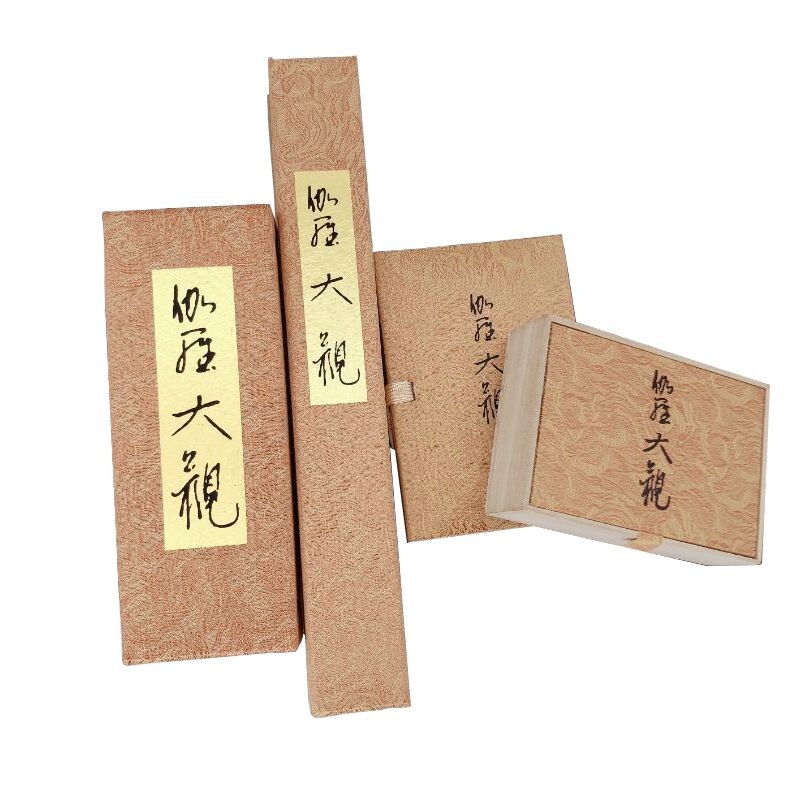 伽羅大観
伽羅大観
伽羅大観
伽羅大観